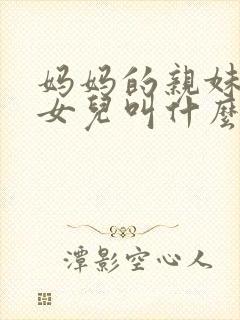 妈妈的親妹
女兒叫什麼
潭影空心人